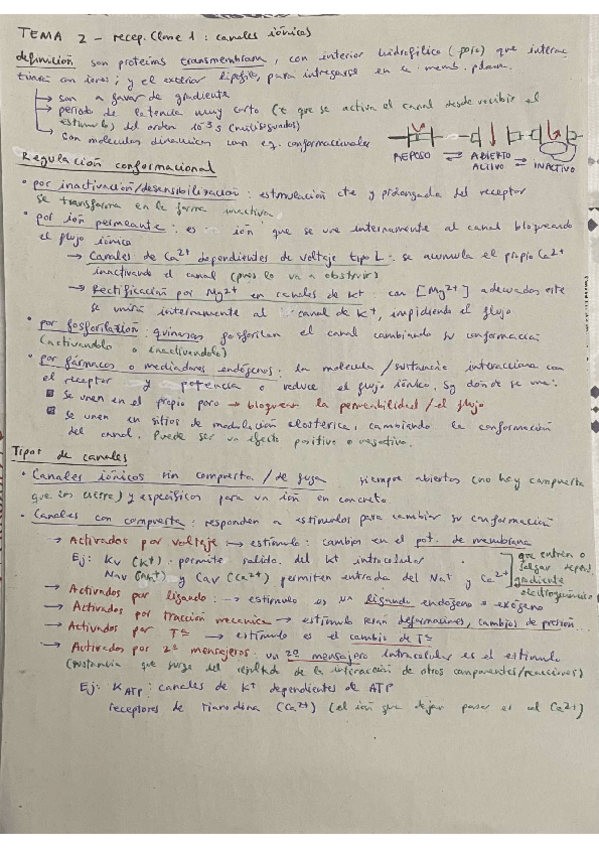 TEMA 2 - recep. Clase 1 : canales iónicos
definición son proteínas transmembrana, con interior hidrofílico (poro) que interac
túan con iones; y el exterior lipófilo, para integrarse en la memb. plasm.
→ son a favor de gradiente
→ periodo de latencia muy corto (t que se activa el canal desde recibir el
estímulo) del orden 10⁻³ s (milisegundos)
→ son moléculas dinámicas con eq. conformacionales
REPOSO ⇌ ABIERTO ACTIVO ⇌ INACTIVO
Regulación conformacional
• por inactivación/desensibilización : estimulación cte y prolongada del receptor
se transforma en la forma inactiva
• por ión permeante : es ión que se une internamente al canal bloqueando
el flujo iónico
→ Canales de Ca2+ dependientes de voltaje tipo L : se acumula el propio Ca2+
inactivando el canal (pues lo va a obstruir)
→ Rectificación por Mg2+ en canales de K+ : con [Mg2+] adecuadas este
se unirá internamente al canal de K+, impidiendo el flujo
• por fosforilación : quinasas fosforilan el canal cambiando su conformación
(activandolo o inactivandolo)
• por fármacos o mediadores endógenos : la molécula / sustancia interacciona con
el receptor y potencia o reduce el flujo iónico. Sg dónde se une:
se unen en el propio poro → bloquean la permeabilidad / el flujo
se unen en sitios de modulación alostérica, cambiando la conformación
del canal. Puede ser un efecto positivo o negativo.
Tipos de canales
• Canales iónicos sin compuerta / de fuga siempre abiertos (no hay compuerta
que los cierre) y específicos para un ión en concreto
• Canales con compuerta : responden a estímulos para cambiar su conformación
→ Activados por voltaje → estímulo : cambios en el pot. de membrana
Ej: Kv (K+) permite salida del K+ intracelular
Nav (Na+) y Cav (Ca2+) permiten entrada del Na+ y Ca2+
que entren o
salgan depend.
gradiente
electroquímico
→ Activados por ligando : → estímulo es un ligando endógeno o exógeno
→ Activados por tracción mecánica → estímulo serán deformaciones, cambios de presión
→ Activados por Tª → estímulo es el cambio de Tª
→ Activados por 2º mensajeros : un 2º mensajero intracelular es el estímulo
(sustancia que surge del resultado de la interacción de otros componentes/reacciones)
Ej: KATP : canales de K+ dependientes de ATP
receptores de rianodina (Ca2+) (el ión que dejan pasar es el Ca2+)